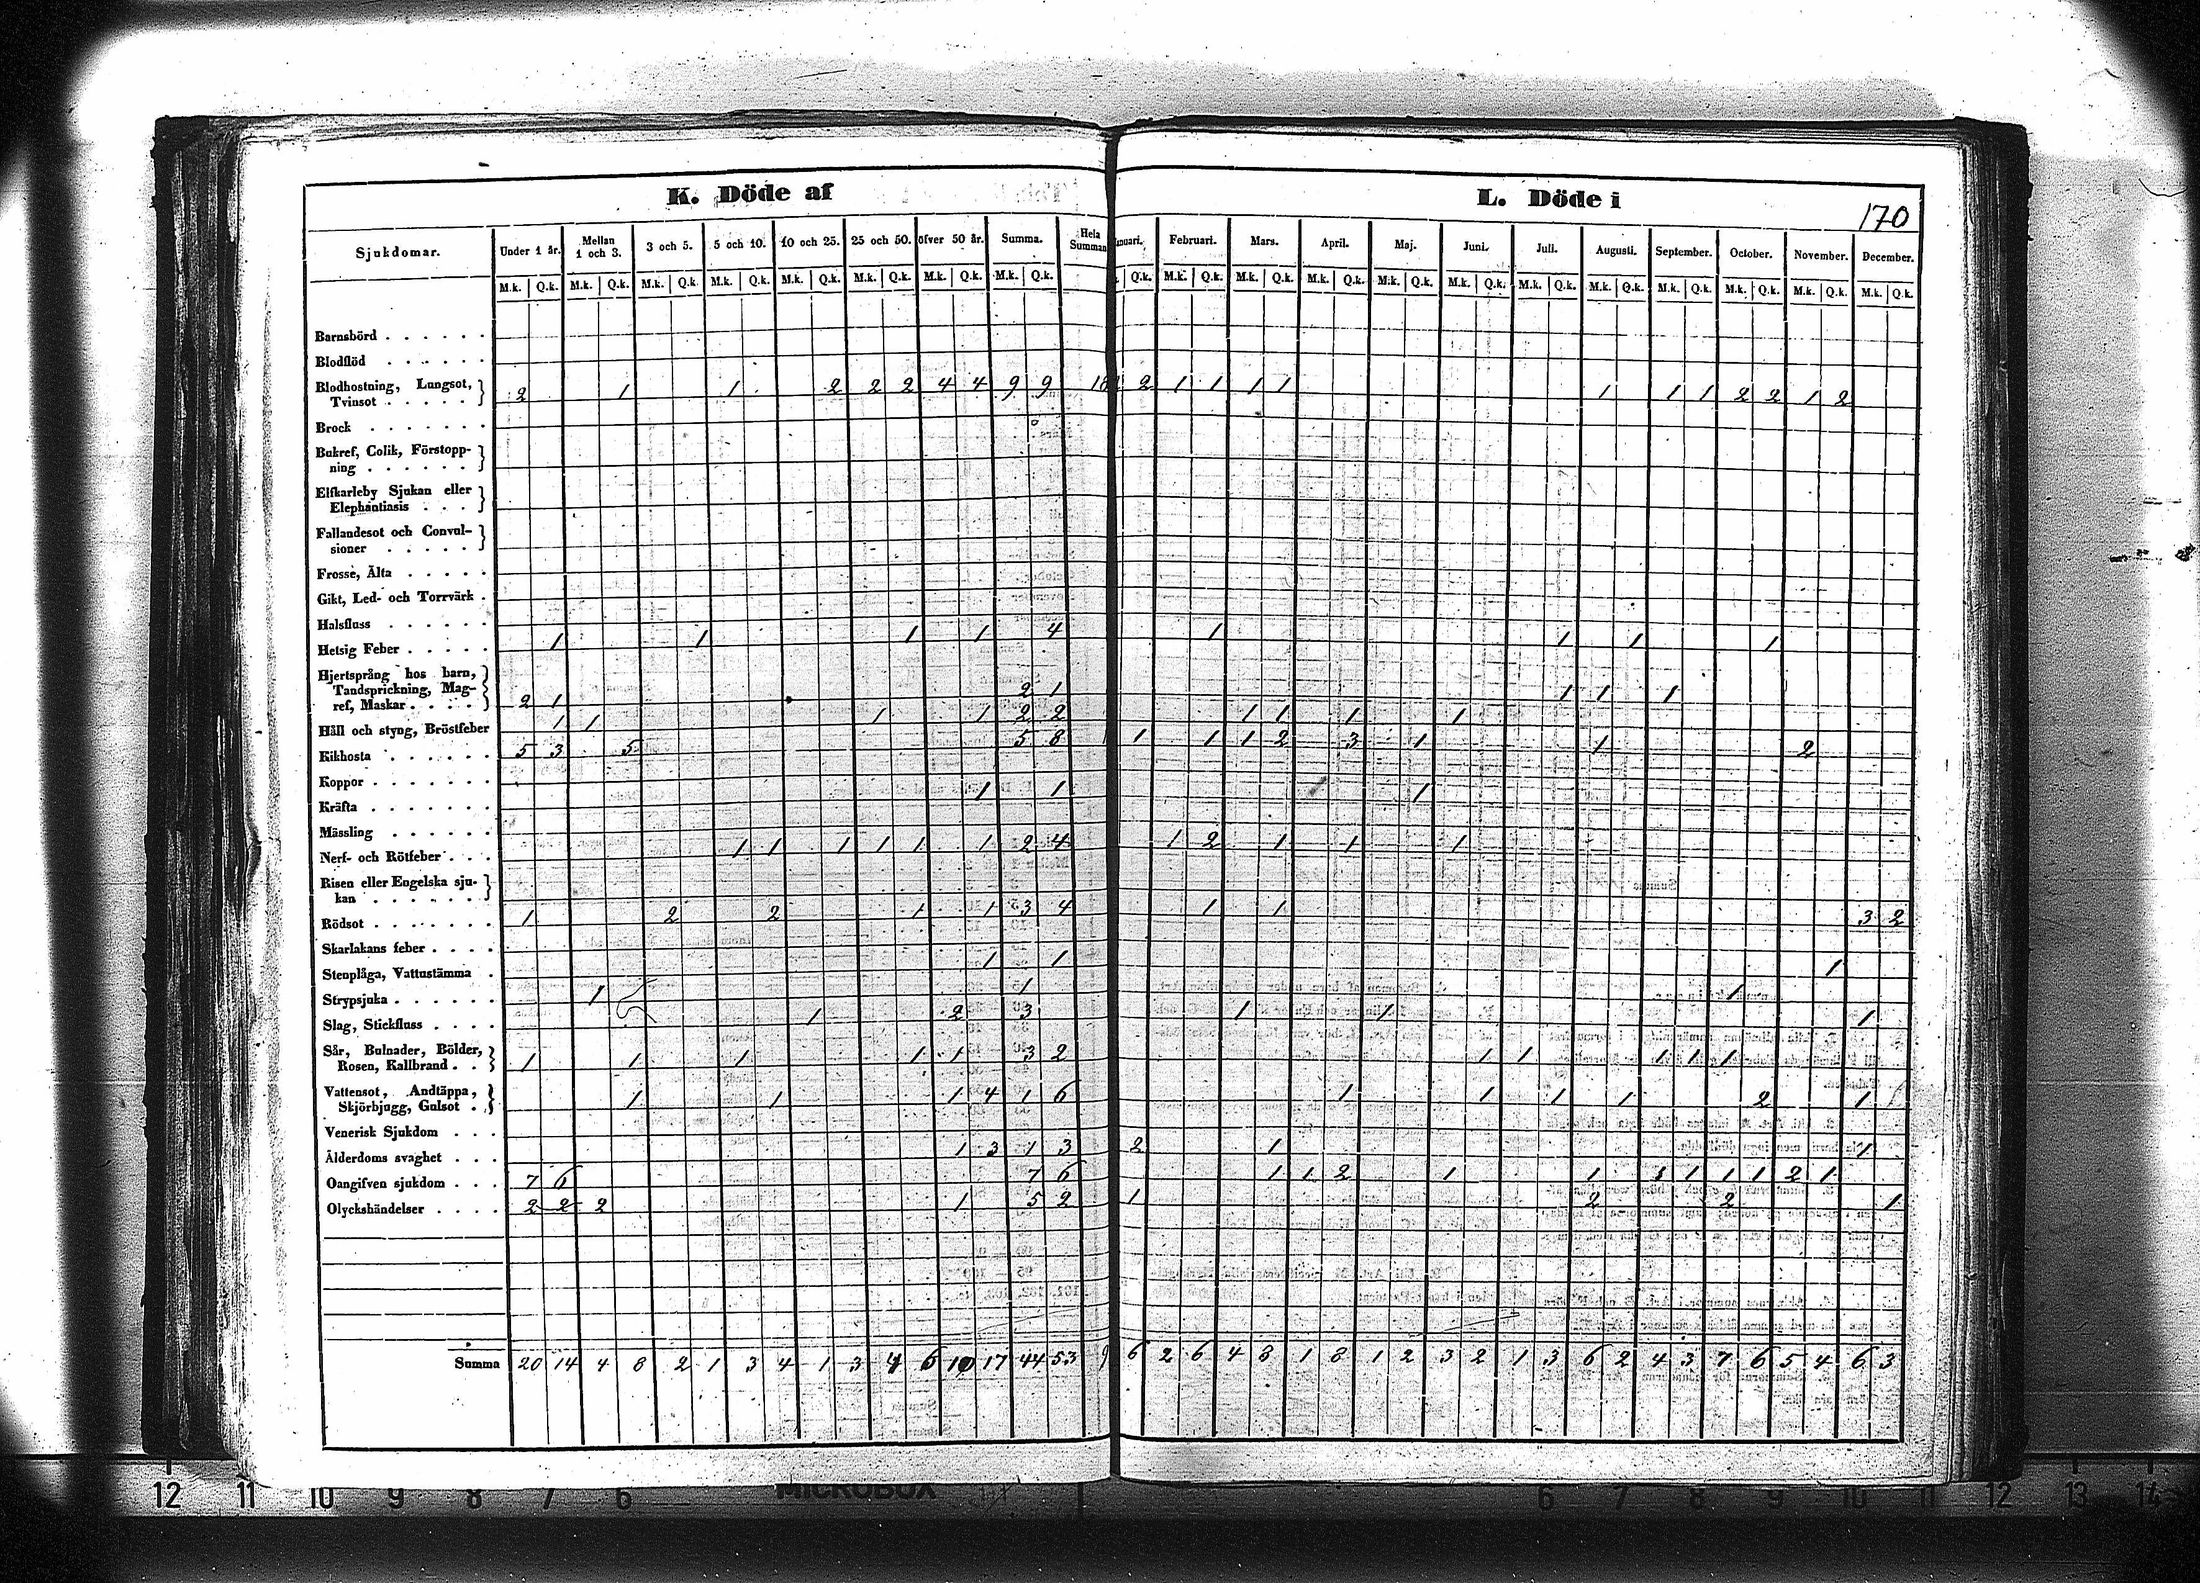 K. Döde af
L. Döde i
170
Sjukdomar. Under 1 år. Mellan 1 och 3. 3 och 5. 5 och 10. 10 och 25. 25 och 50. öfver 50 år. Summa. Hela Summan
anuari. Februari. Mars. April. Maj. Juni. Juli. Augusti. September. October. November. December.
M.k. Q.k. M.k. Q.k. M.k. Q.k. M.k. Q.k. M.k. Q.k. M.k. Q.k. M.k. Q.k. M.k. Q.k.
Q.k. M.k. Q.k. M.k. Q.k. M.k. Q.k. M.k. Q.k. M.k. Q.k. M.k. Q.k. M.k. Q.k. M.k. Q.k. M.k. Q.k. M.k. Q.k. M.k. Q.k.
Barnsbörd . . . . . .
Blodflöd . . . . . .
Blodhostning, Lungsot, }
Tvinsot . . . . . } 2 1 1 2 2 2 4 4 9 9 18 2 1 1 1 1 1 1 1 2 2 1 2
Brock . . . . . . .
Bukref, Colik, Förstopp- }
ning . . . . . . }
Elfkarleby Sjukan eller }
Elephantiasis . . . }
Fallandesot och Convul- }
sioner . . . . . }
Frosse, Älta . . . . .
Gikt, Led- och Torrvärk .
Halsfluss . . . . . .
Hetsig Feber . . . . . 1 1 1 1 4 1 1 1 1
Hjertsprång hos barn, }
Tandsprickning, Mag- }
ref, Maskar . . . . } 2 1 2 1 1 1 1
Håll och styng, Bröstfeber 1 1 1 1 2 2 1 1 1 1
Kikhosta . . . . . . 5 3 5 5 8 1 1 1 2 3 1 1 2
Koppor . . . . . . .
Kräfta . . . . . . . 1 1 1
Mässling . . . . . .
Nerf- och Rötfeber . . . 1 1 1 1 1 1 2 4 1 2 1 1 1
Risen eller Engelska sju- }
kan . . . . . . . }
Rödsot . . . . . . . 1 2 2 1 1 3 4 1 1 3 2
Skarlakans feber . . . .
Stenplåga, Vattustämma . 1 1 1
Strypsjuka . . . . . . 1 1 1
Slag, Stickfluss . . . . 1 2 3 1 1 1
Sår, Bulnader, Bölder, }
Rosen, Kallbrand . . } 1 1 1 1 1 3 2 1 1 1 1 1
Vattensot, Andtäppa, }
Skjörbjugg, Gulsot . } 1 1 1 4 1 6 1 1 1 1 2 1
Venerisk Sjukdom . . .
Ålderdoms svaghet . . . 1 3 1 3 2 1 1
Oangifven sjukdom . . . 7 6 7 6 1 1 2 1 1 1 1 1 1 2 1
Olyckshändelser . . . . 2 2 2 1 5 2 1 2 2 1
Summa 20 14 4 8 2 1 3 4 1 3 4 6 10 17 44 53 9 6 2 6 4 8 1 8 1 2 3 2 1 3 6 2 4 3 7 6 5 4 6 3
12 11 10 9 8 7 6 MICROBOX 6 7 8 9 10 11 12 13 14